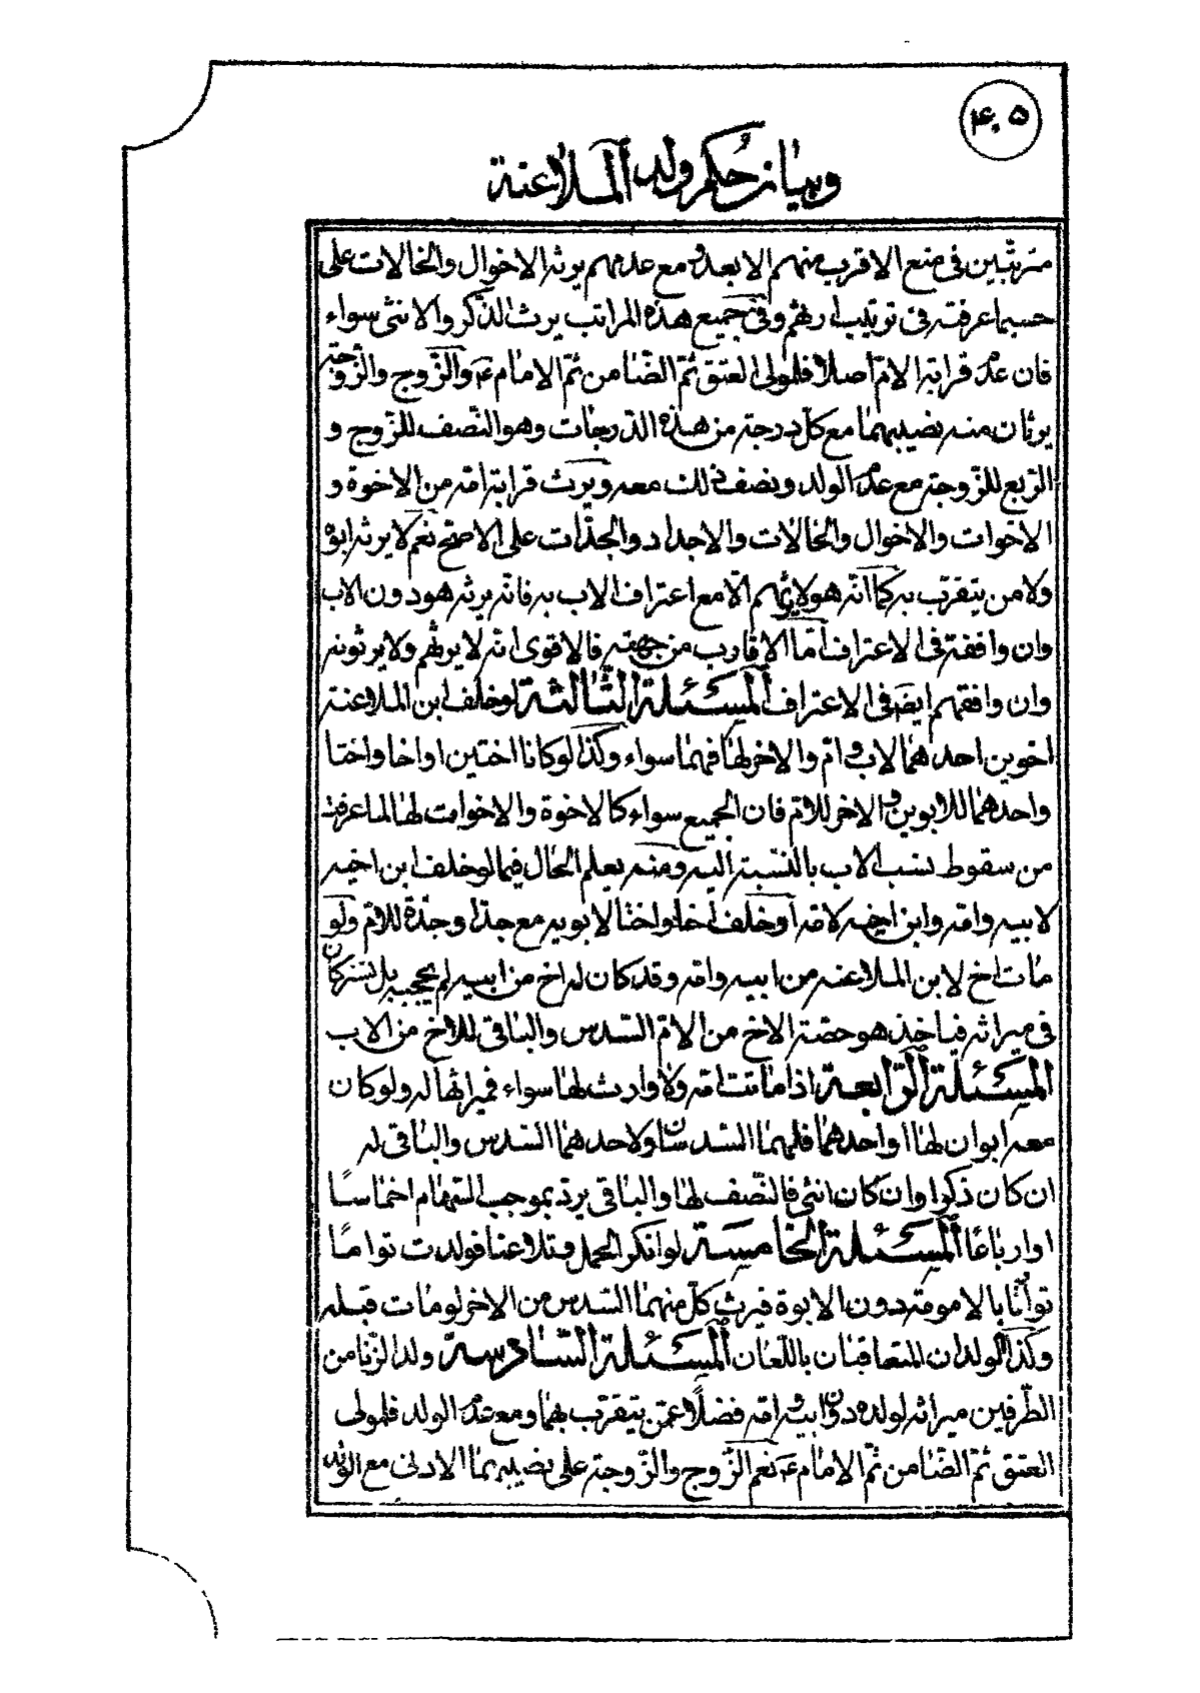 ۴۰۵
وبیان حکم ولد الملاعنة
مترتبین فی منع الاقرب منهم الابعد و مع عدمهم یرثه الاخوال والخالات علی
حسبما عرفته فی ترتیب ارثهم وفی جمیع هذه المراتب یرث الذکر والانثی سواء
فان عدم قرابة الام اصلا فلمولی العتق ثم الضامن ثم الامام ع والزوج والزوجة
یرثان منه نصیبهما مع کل درجة من هذه الدرجات وهو النصف للزوج و
الربع للزوجة مع عدم الولد ونصف ذلک معه ویرث قرابة امه من الاخوة و
الاخوات والاخوال والخالات والاجداد والجدات علی الاصح نعم لا یرثه ابوه
ولا من یتقرب به کما انه هو لا یرثهم الا مع اعتراف الاب به فانه یرثه هو دون الاب
وان وافقه فی الاعتراف اما الاقارب من جهته فالاقوی انه لا یرثهم ولا یرثونه
وان وافقهم ایضا فی الاعتراف المسئلة الثالثة لو خلف ابن الملاعنة
اخوین احدهما لاب و ام والاخر لها فهما سواء وکذا لو کانا اختین او اخا واختا
واحدهما للابوین و الاخر للام فان الجمیع سواء کالاخوة والاخوات لها لما عرفت
من سقوط نسب الاب بالنسبة الیه ومنه یعلم الحال فیما لو خلف ابن اخیه
لابیه وامه وابن اخیه لامه او خلف اخا واختا لابویه مع جد او جدة للام ولو
مات اخ لابن الملاعنه من ابیه وامه وقد کان له اخ من ابیه لم یحجبه بل یشترکان
فی میراثه فیاخذ هو حصة الاخ من الام السدس والباقی للاخ من الاب
المسئلة الرابعة اذا ماتت امه ولا وارث لها سواه فمیراثها له ولو کان
معه ابوان لها او احدهما فلهما السدسان او لاحدهما السدس والباقی له
ان کان ذکرا وان کان انثی فالنصف لها والباقی یرد بموجب السهام اخماسًا
او ارباعًا المسئلة الخامسة لو انکر الحمل فتلاعنا فولدت توامًا
توارثا بالامومة دون الابوة فیرث کل منهما السدس من الاخر لو مات قبله
وکذا الولدان المتعاقبان باللعان المسئلة السادسة ولد الزنا من
الطرفین میراثه لولده دون ابیه و امه فضلًا عمن یتقرب بهما ومع عدم الولد فلمولی
العتق ثم الضامن ثم الامام ع نعم الزوج والزوجة علی نصیبهما الادنی مع الولد